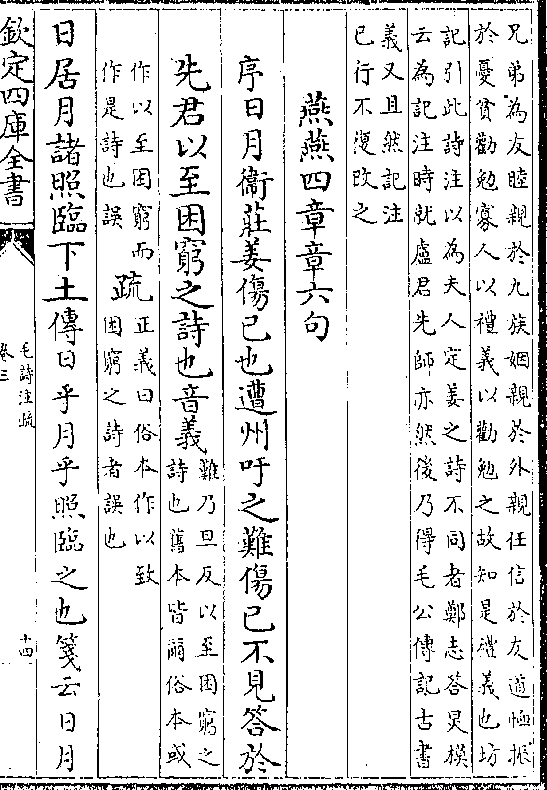 兄弟為友睦親於九族姻親於外親任信於友道恤振
於憂貧勸勉寡人以禮義以勸勉之故知是禮義也坊
記引此詩注以為夫人定姜之詩不同者鄭志答炅模
云為記注時就盧君先師亦然後乃得毛公傳記古書
義又且然記注
已行不復改之
燕燕四章章六句
序日月衞莊姜傷已也遭州吁之難傷已不見答於
先君以至困窮之詩也音義
難乃旦反以至困窮之
詩也舊本皆爾俗本或
作以至困窮而
作是詩也誤
疏
正義曰俗本作以致
困窮之詩者誤也
日居月諸照臨下土傳日乎月乎照臨之也箋云日月
欽定四庫全書
毛詩注疏
卷三
十四